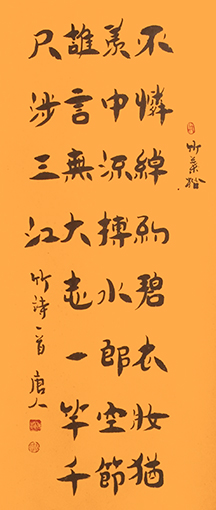 竹
不憐綽約碧衣妝猶
羨中流搏水郎空節
雖言無大志一竿千
尺涉三江
竹詩一首 唐人